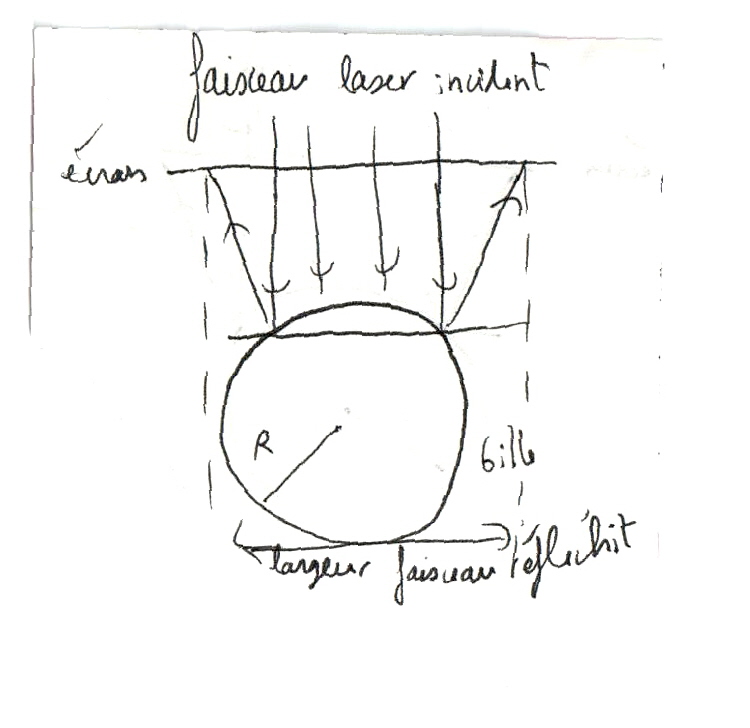 faisceau laser incident
écran
R
bille
largeur faisceau réfléchit